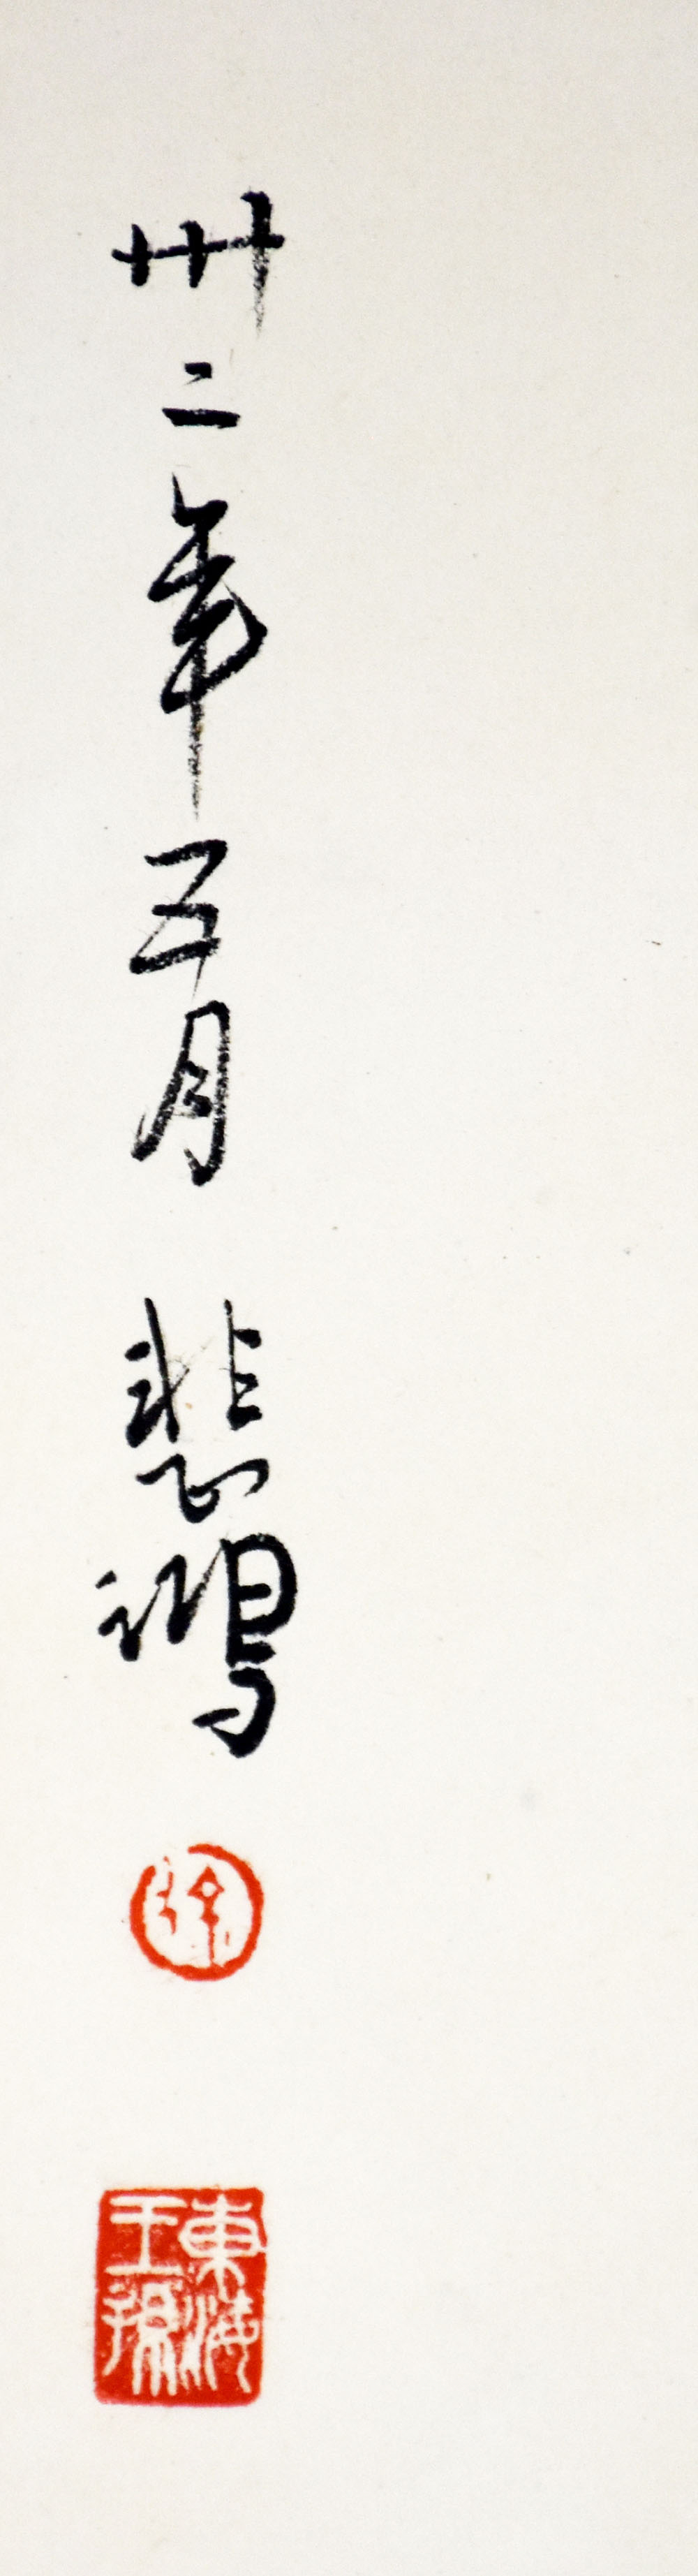 卅二年五月 悲鴻
徐
東海王孫